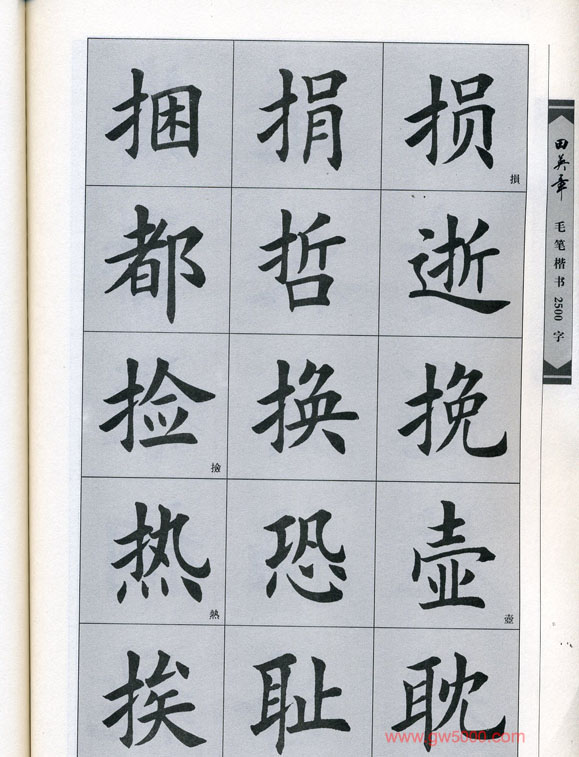 捆 捐 损 損
都 哲 逝
捡 撿 换 挽
热 熱 恐 壶 壺
挨 耻 耽
田英章 毛笔楷书 2500 字
www.gw5000.com